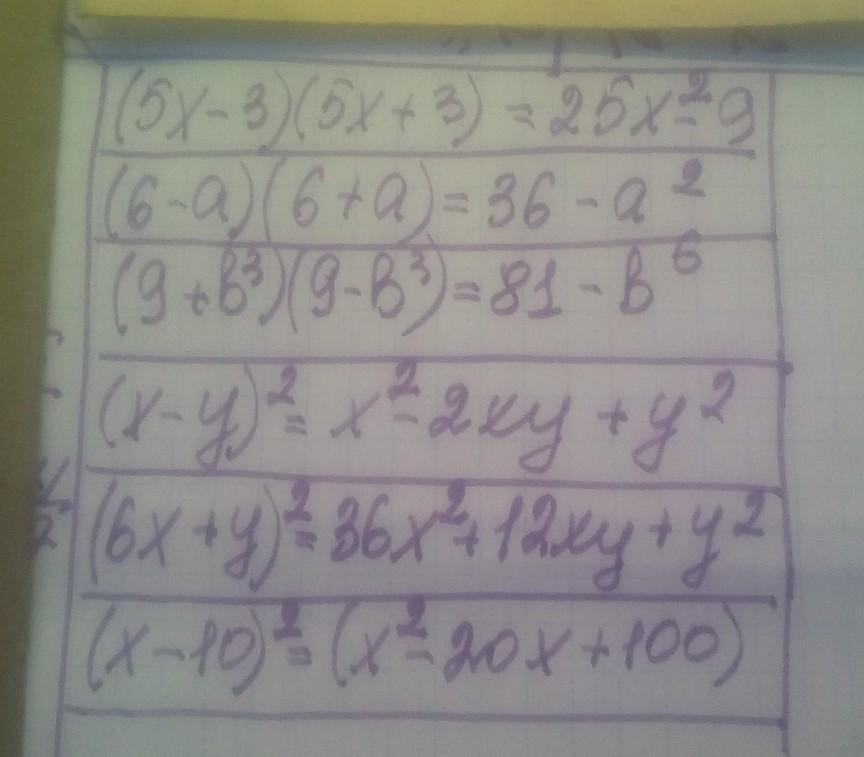 (5x-3)(5x+3) = 25x²-9
(6-a)(6+a) = 36 - a²
(9+b³)(9-b³) = 81 - b⁶
(x-y)² = x² - 2xy + y²
(6x+y)² = 36x² + 12xy + y²
(x-10)² = (x² - 20x + 100)